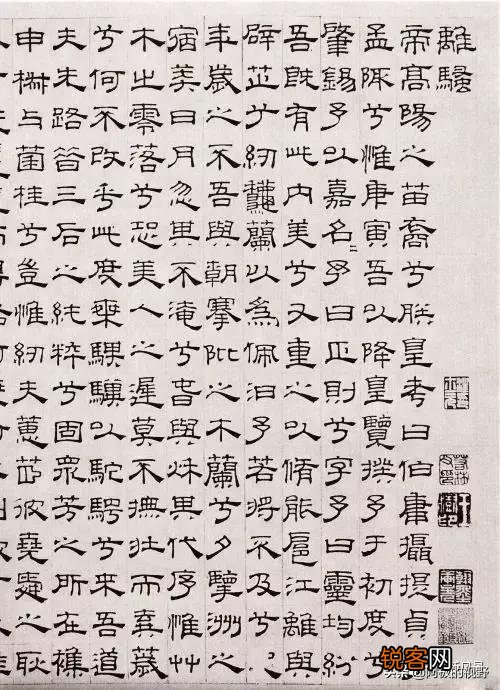 離騷
帝高陽之苗裔兮朕皇考曰伯庸攝提貞
孟陬兮惟庚寅吾以降皇覽揆予于初度兮
肇錫予以嘉名〻予曰正則兮字予曰靈均紛
吾既有此內美兮又重之以脩能扈江離與
辟芷兮紉龝蘭以為佩汩予若將不及兮
年歲之不吾與朝搴阰之木蘭兮夕擥洲之
宿莽日月忽其不淹兮春與秋其代序惟艸
木之零落兮恐美人之遲莫不撫壯而棄薉
兮何不改乎此度椉騏驥以駝騁兮來吾道
夫先路昔三后之純粹兮固眾芳之所在襍
申椒与菌桂兮豈惟紉夫蕙茝彼堯舜之耿
锐客网